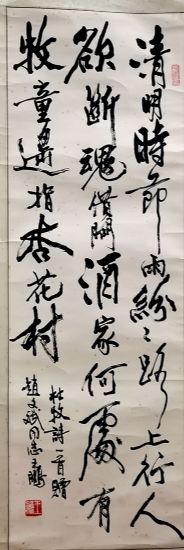 清明時節雨紛紛路上行人
欲断魂借問酒家何處有
牧童遥指杏花村
杜牧詩一首贈
趙文斌同志